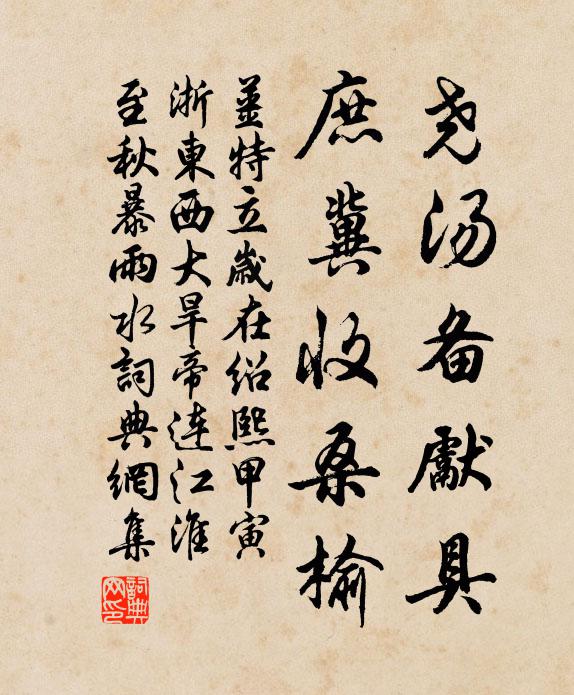 尧汤备献具
庶冀收桑榆
姜特立歳在绍熙甲寅
浙東西大旱帝連江淮
至秋暴雨水詞典網集
詞典网印